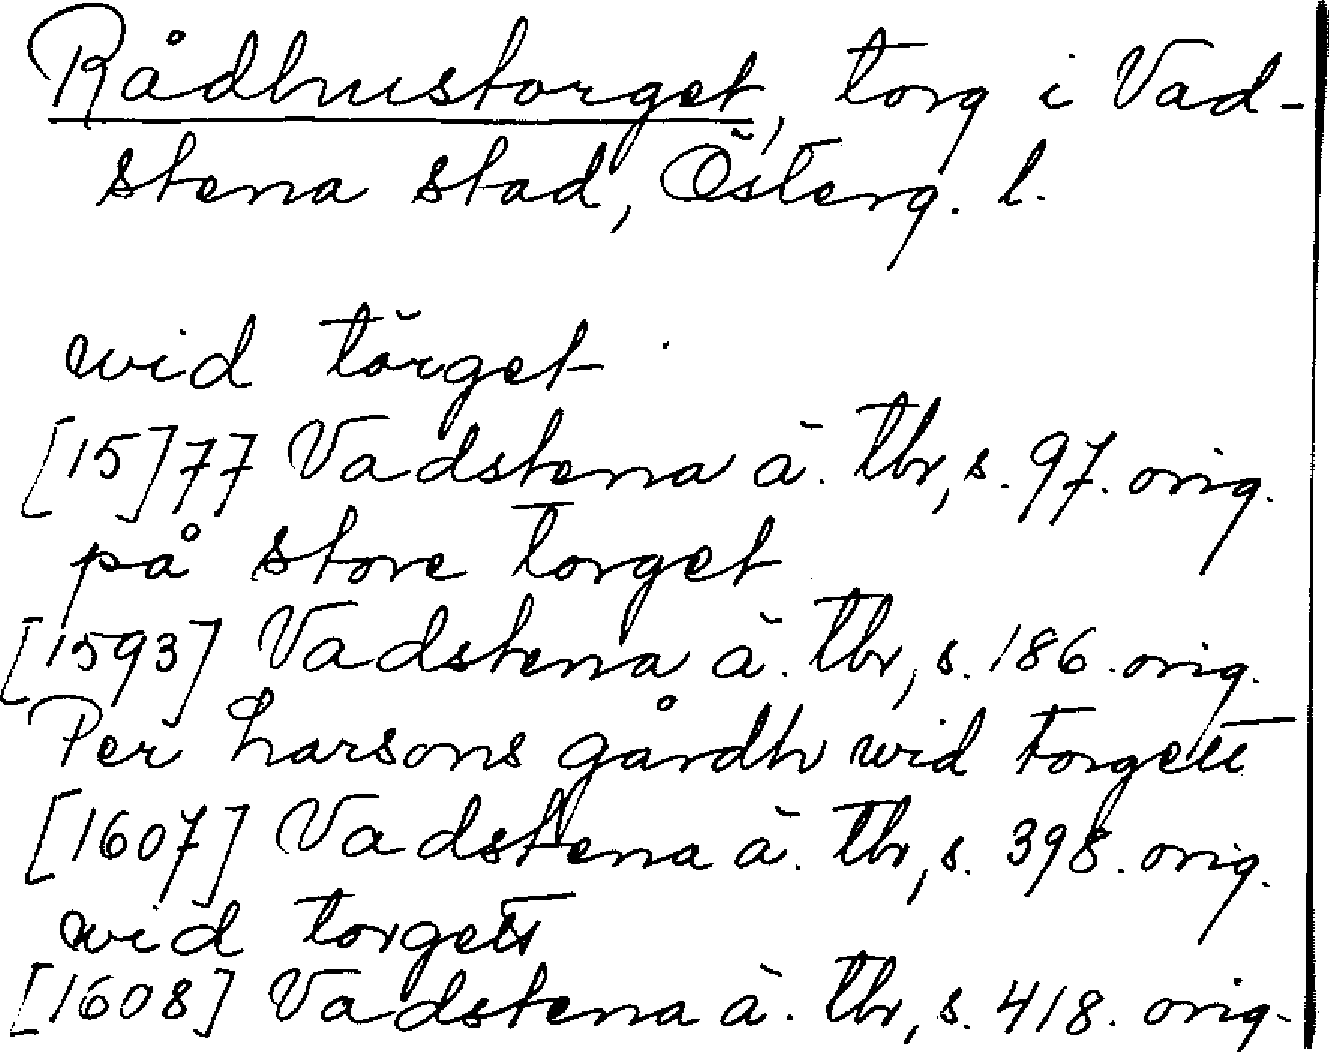 Rådhustorget, torg i Vad-
stena stad, Österg. l.
wid törget
[15]77 Vadstena ä. tbr, s. 97. orig.
på store torget
[1593] Vadstena ä. tbr, s. 186. orig.
Per Larsons gårdh wid torgett
[1607] Vadstena ä. tbr, s. 398. orig.
wid torgett
[1608] Vadstena ä. tbr, s. 418. orig.